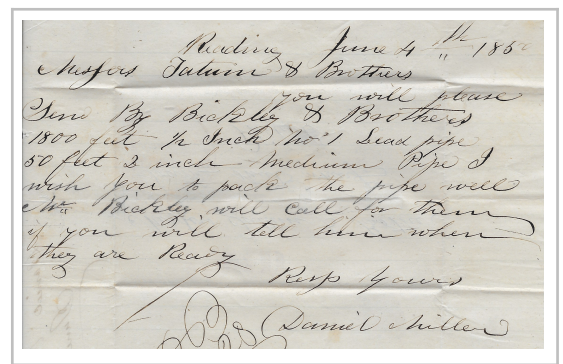 Reading June 4th 1850
Messrs Tatum & Brothers
you will please
Send By Bickley & Brothers
1800 feet 1/2 Inch No 1 Lead pipe
50 feet 2 inch Medium Pipe I
wish you to pack the pipe well
Mr Bickley will call for them
if you will tell him when
they are Ready
Resp Yours
Daniel Miller